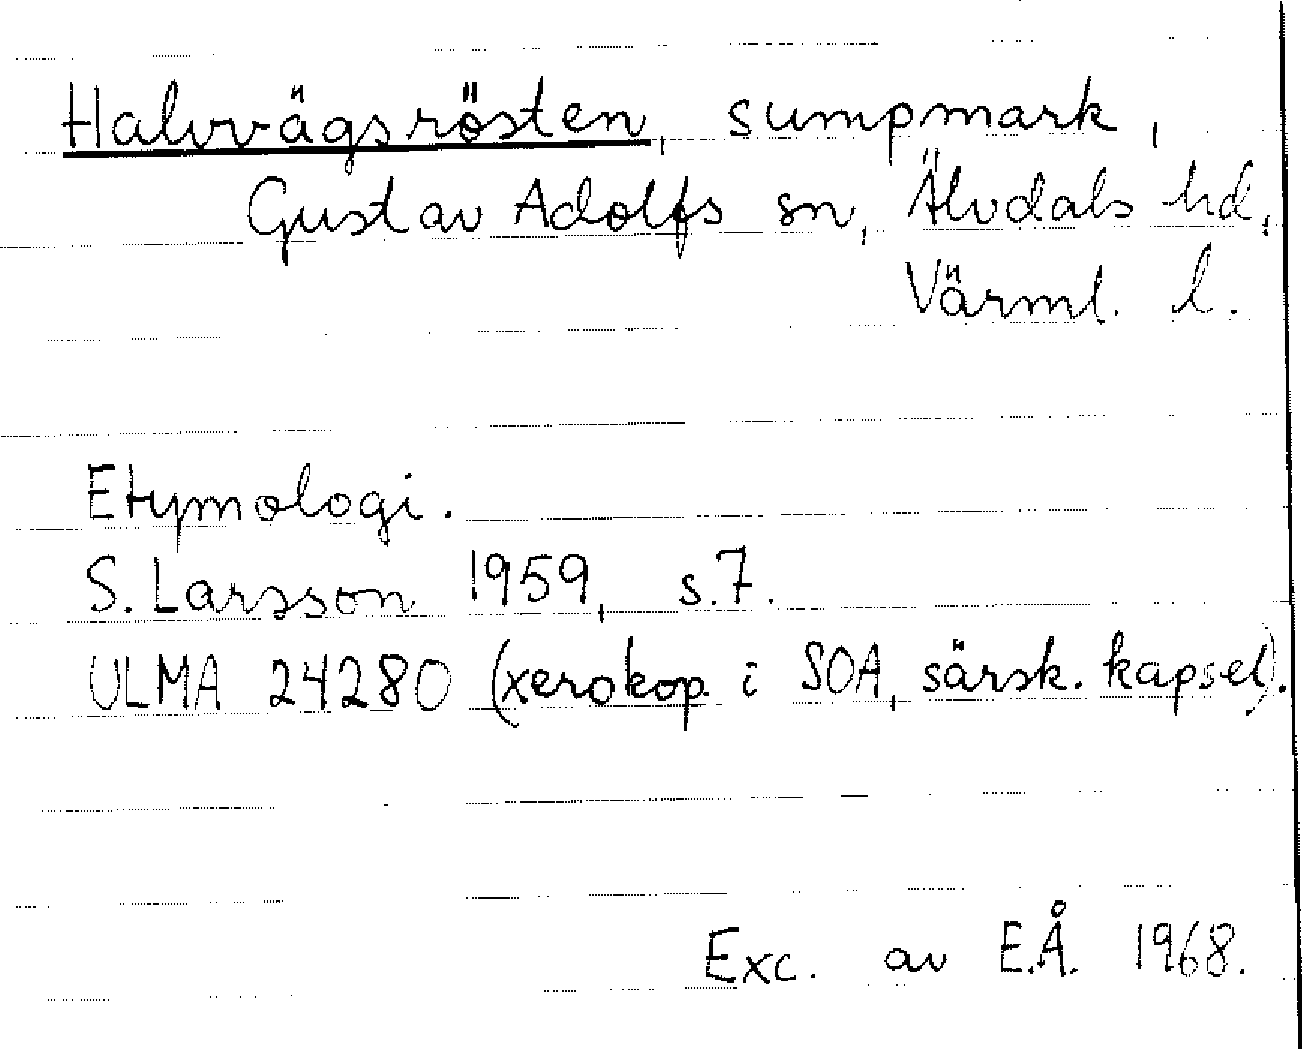 Halvvägsrösten, sumpmark,
Gustav Adolfs sn, Älvdals hd,
Värml. l.
Etymologi.
S. Larsson 1959, s.7.
ULMA 24280 (xerokop. i SOA, särsk. kapsel).
Exc. av E.Å. 1968.